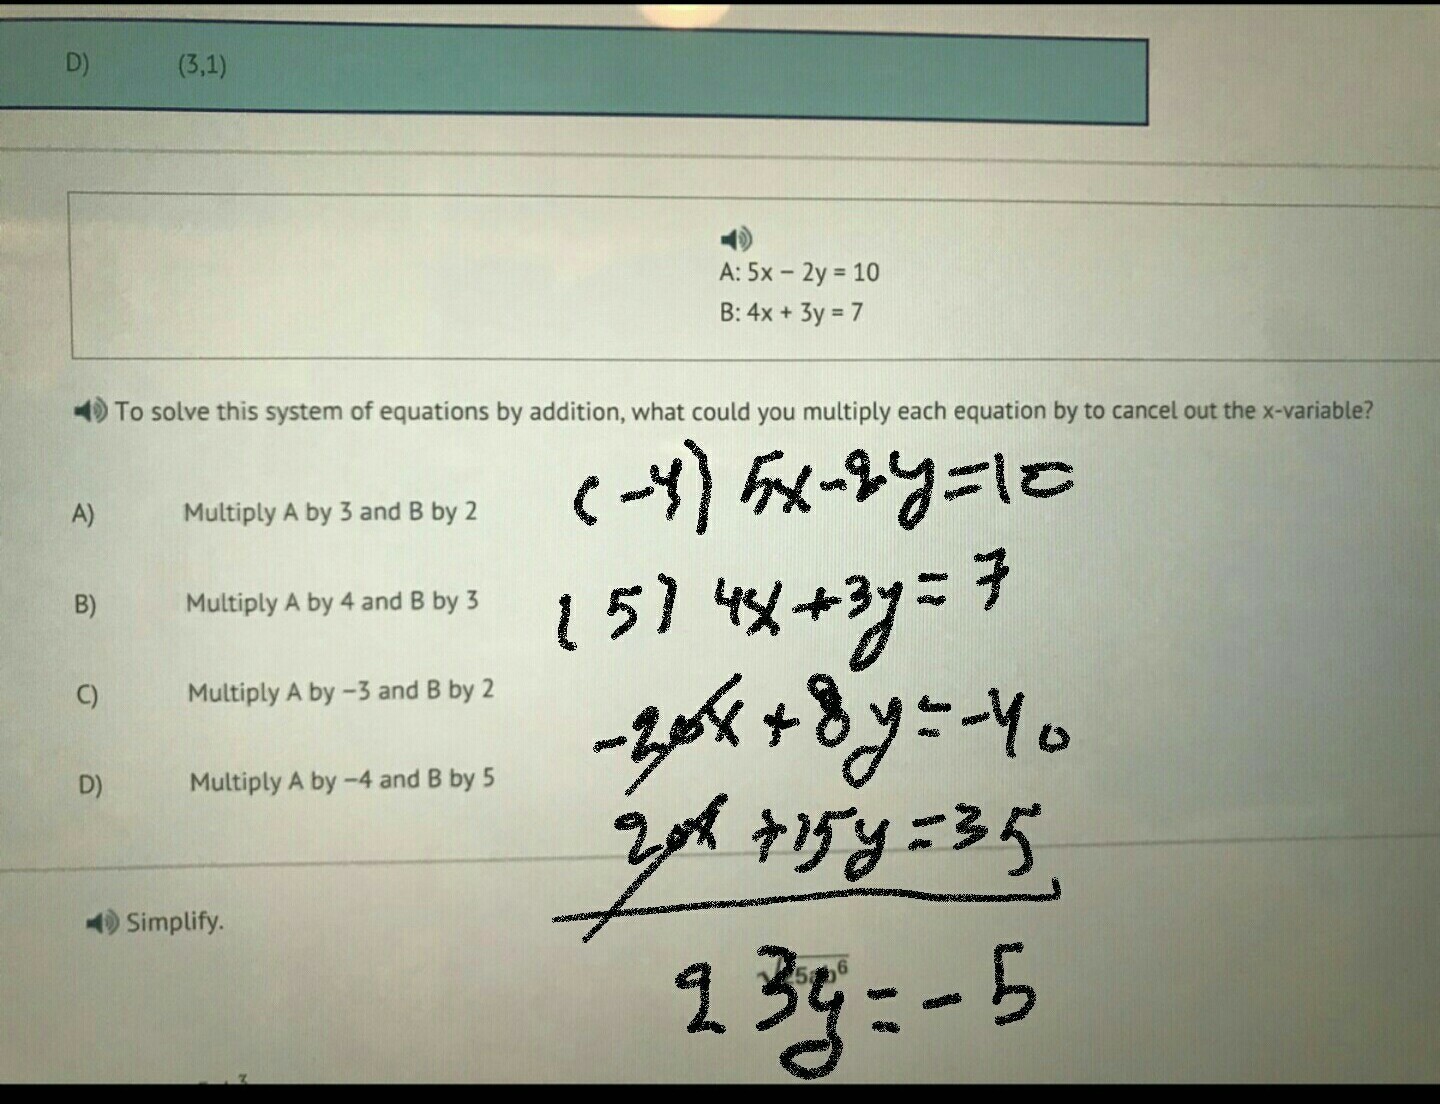 D) (3,1)
A: 5x − 2y = 10
B: 4x + 3y = 7
To solve this system of equations by addition, what could you multiply each equation by to cancel out the x-variable?
A) Multiply A by 3 and B by 2
B) Multiply A by 4 and B by 3
C) Multiply A by −3 and B by 2
D) Multiply A by −4 and B by 5
(-4) 5x-2y=10
(5) 4x+3y=7
-20x+8y=-40
20x+15y=35
23y=-5
Simplify.